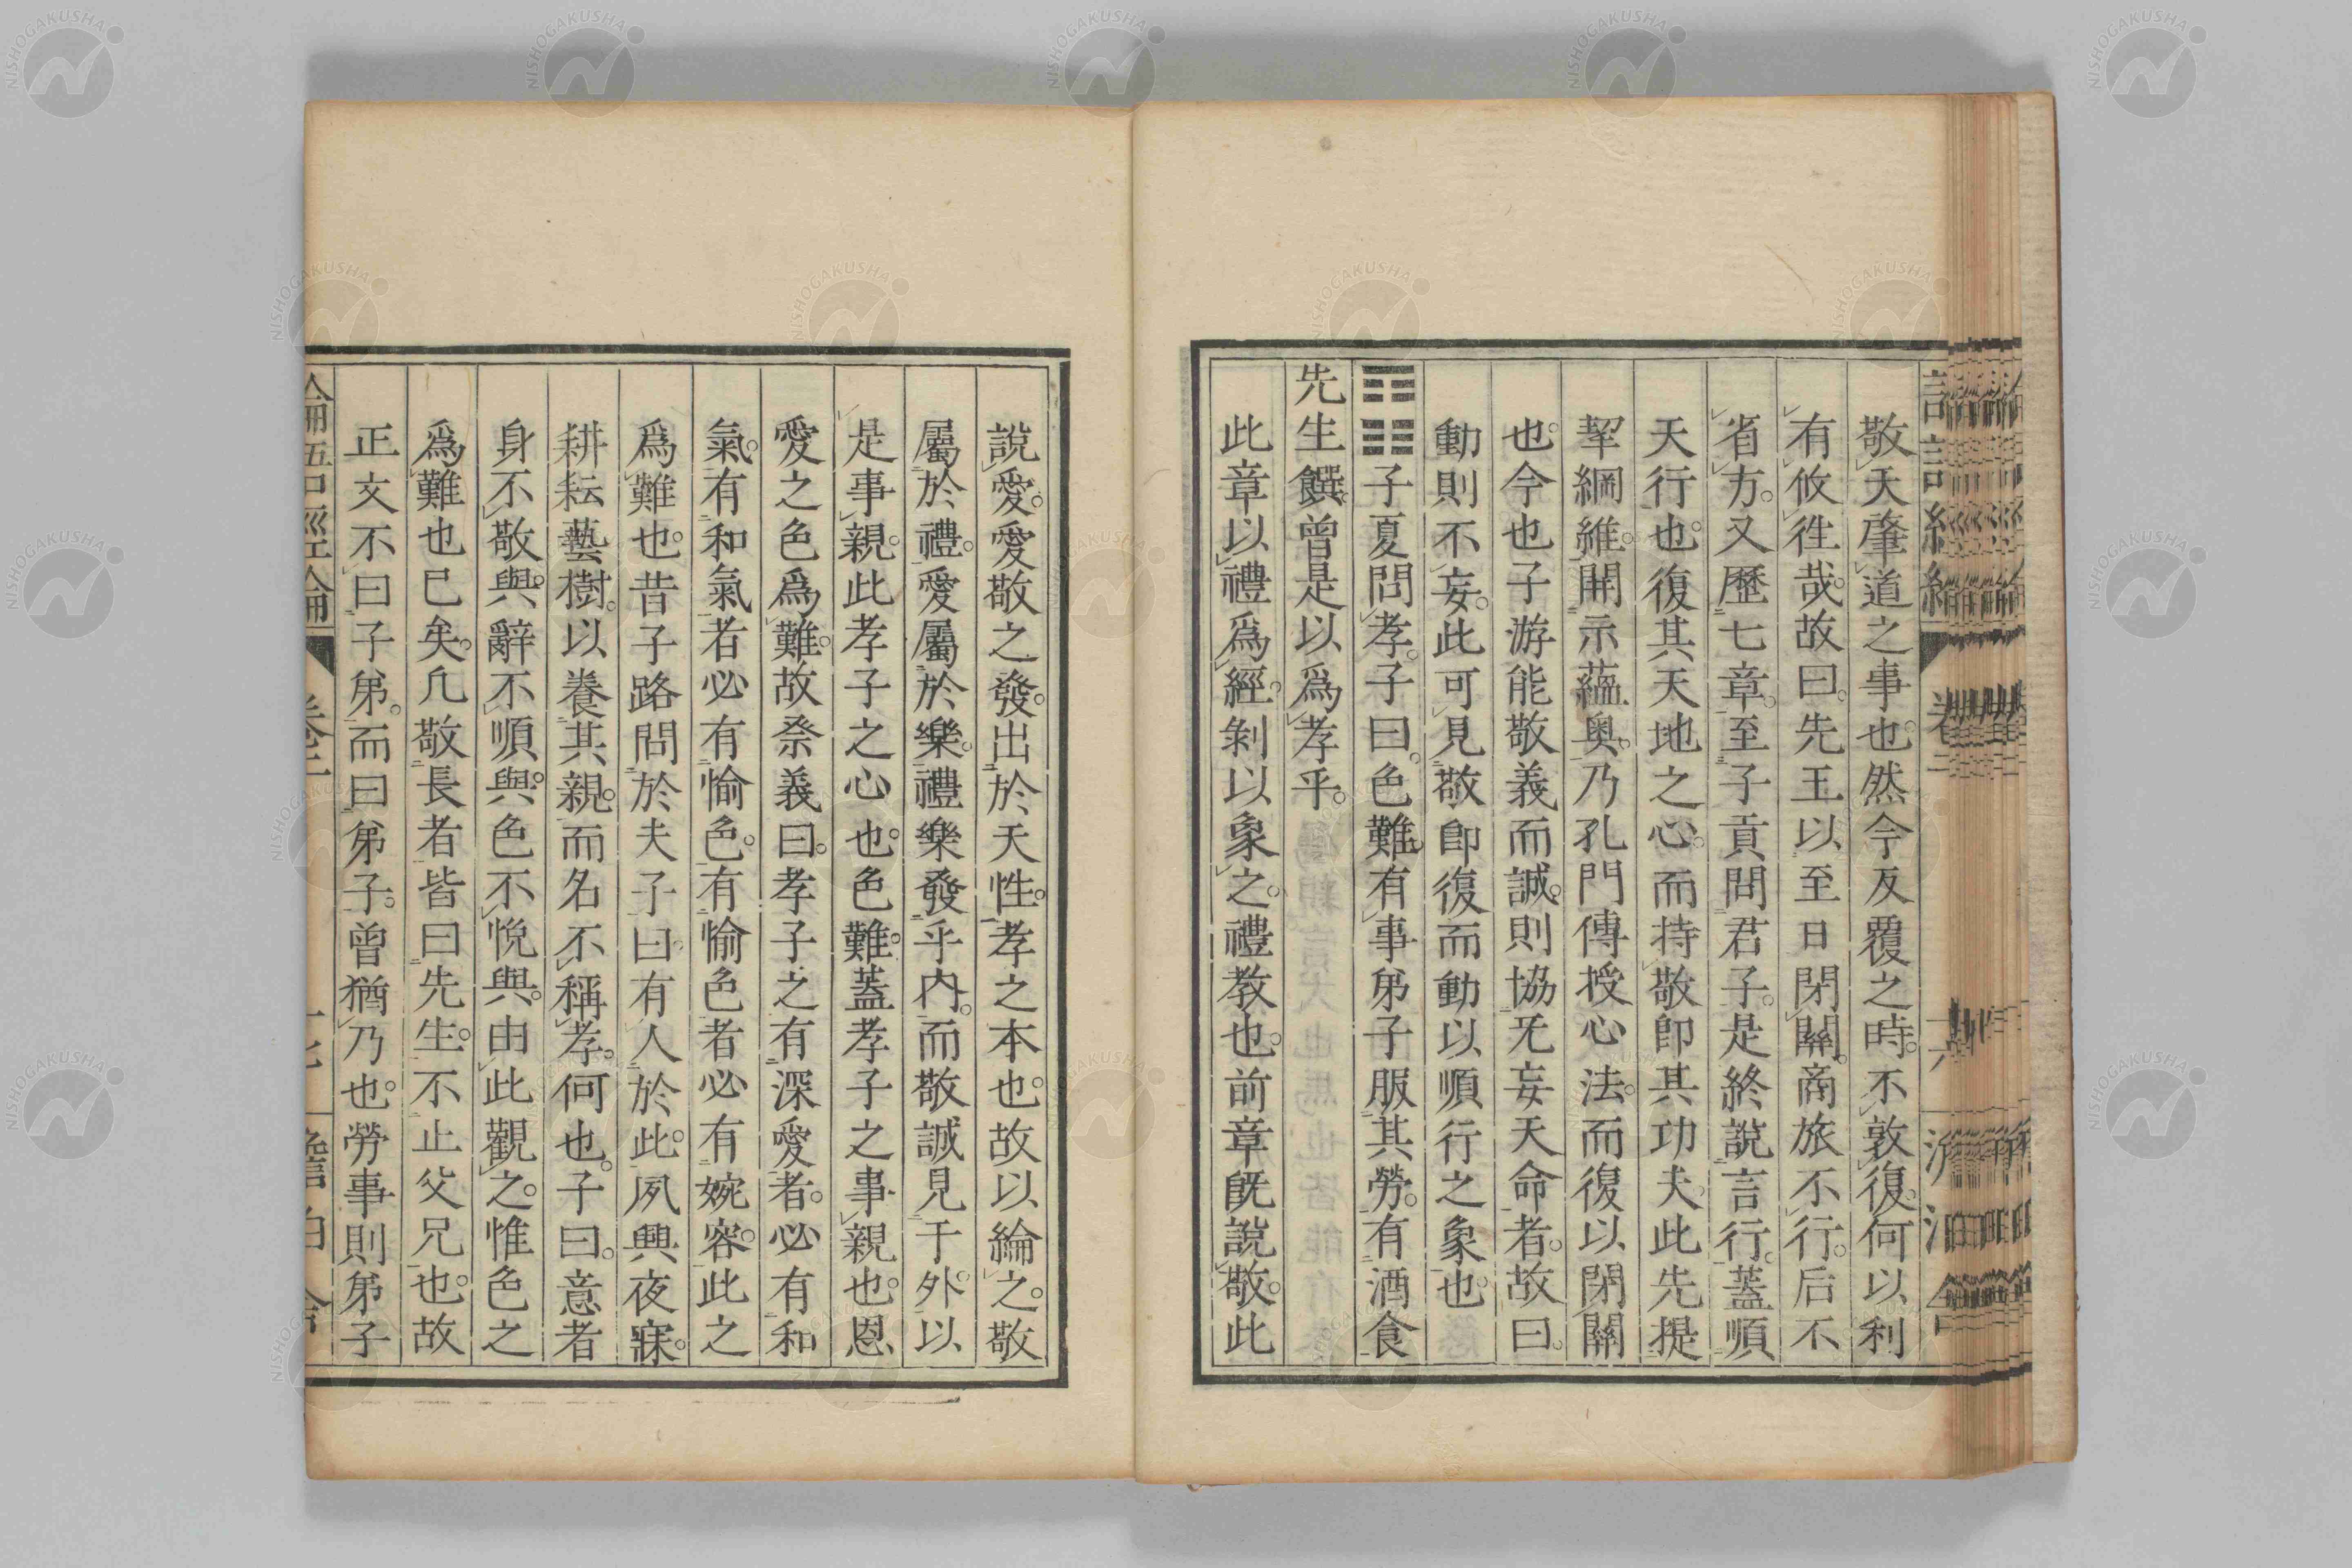 敬天肇道之事也。然今反覆之時。不敦復。何以利
有攸往哉。故曰。先王以至日閉關。商旅不行。后不
省方。又歷七章。至子貢問君子。是終說言行。蓋順
天行也。復其天地之心。而持敬卽其功夫。此先提
挈綱維。開示蘊奧。乃孔門傳授心法。而復以閉關
也。今也子游能敬義而誠。則協无妄天命者。故曰。
動則不妄。此可見敬卽復而動以順行之象也。
子夏問孝。子曰。色難。有事弟子服其勞。有酒食
先生饌。曾是以爲孝乎。
此章以禮爲經。剝以象之。禮教也。前章既說敬。此
說愛。愛敬之發。出於天性。孝之本也。故以綸之。敬
屬於禮。愛屬於樂。禮樂發乎內。而敬誠見于外。以
是事親。此孝子之心也。色難。蓋孝子之事親也。恩
愛之色爲難。故祭義曰。孝子之有深愛者。必有和
氣。有和氣者必有愉色。有愉色者必有婉容。此之
爲難也。昔子路問於夫子曰。有人於此。夙興夜寐。
耕耘藝樹。以養其親。而名不稱孝。何也。子曰。意者
身不敬與。辭不順與。色不悅與。由此觀之。惟色之
爲難也已矣。凡敬長者皆曰先生。不止父兄也。故
正文不曰子弟。而曰弟子。曾猶乃也。勞事則弟子
論語經論
卷二